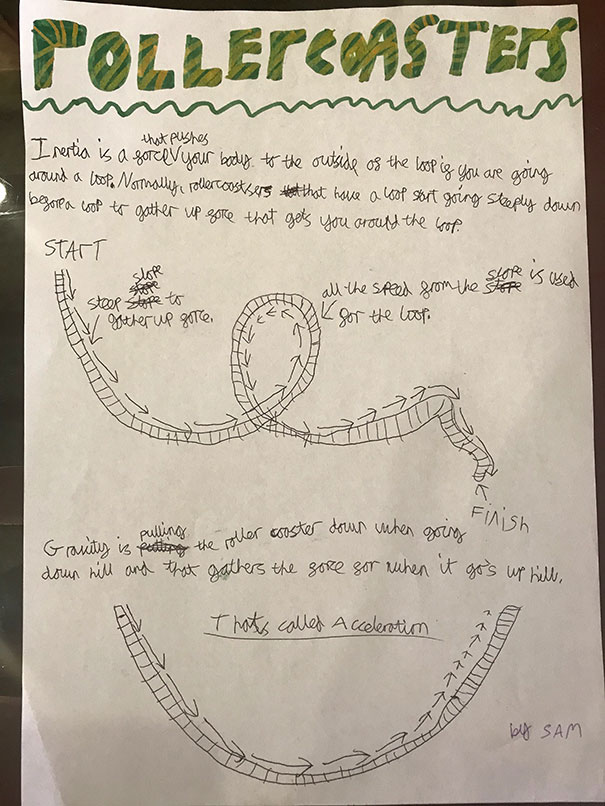 ROLLERCOASTERS
that pushes
Inertia is a force your body to the outside of the loop if you are going
around a loop. Normally, rollercoasters that have a loop start going steeply down
before a loop to gather up force that gets you around the loop.
START
slope
steep slope to
gather up force.
all the speed from the slope is used
for the loop.
FINISH
pulling
Gravity is the roller coaster down when going
down hill and that gathers the force for when it go's up hill.
That's called Acceleration
by SAM